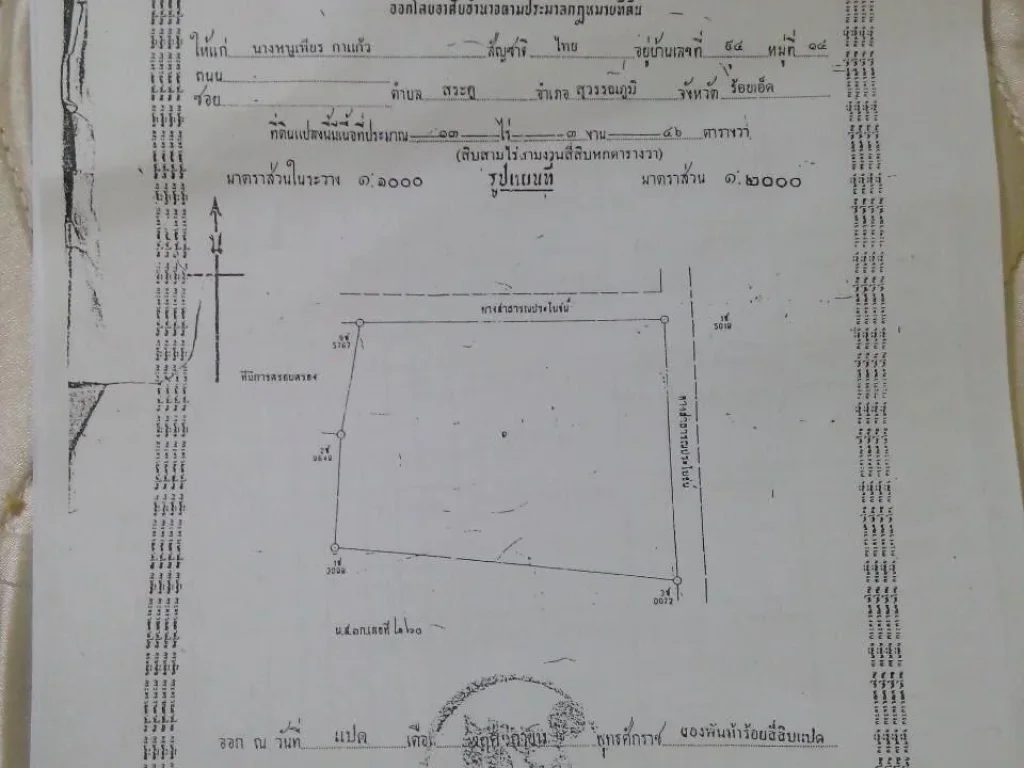 ออกโดยอาศัยอำนาจตามประมวลกฎหมายที่ดิน
ให้แก่ นางหนูเพียร กาแก้ว สัญชาติ ไทย อยู่บ้านเลขที่ ๙๔ หมู่ที่ ๑๔
ถนน
ซอย ตำบล สระคู อำเภอ สุวรรณภูมิ จังหวัด ร้อยเอ็ด
ที่ดินแปลงนี้มีเนื้อที่ประมาณ ๑๓ ไร่ ๓ งาน ๔๖ ตารางวา
(สิบสามไร่สามงานสี่สิบหกตารางวา)
มาตราส่วนในระวาง ๑:๑๐๐๐ รูปแผนที่ มาตราส่วน ๑:๒๐๐๐
น
ทางสาธารณประโยชน์
ที่มีการครอบครอง
ทางสาธารณประโยชน์
น.ส.๓ก.เลขที่
ออก ณ วันที่ แปด เดือน พฤศจิกายน พุทธศักราช สองพันห้าร้อยสี่สิบแปด